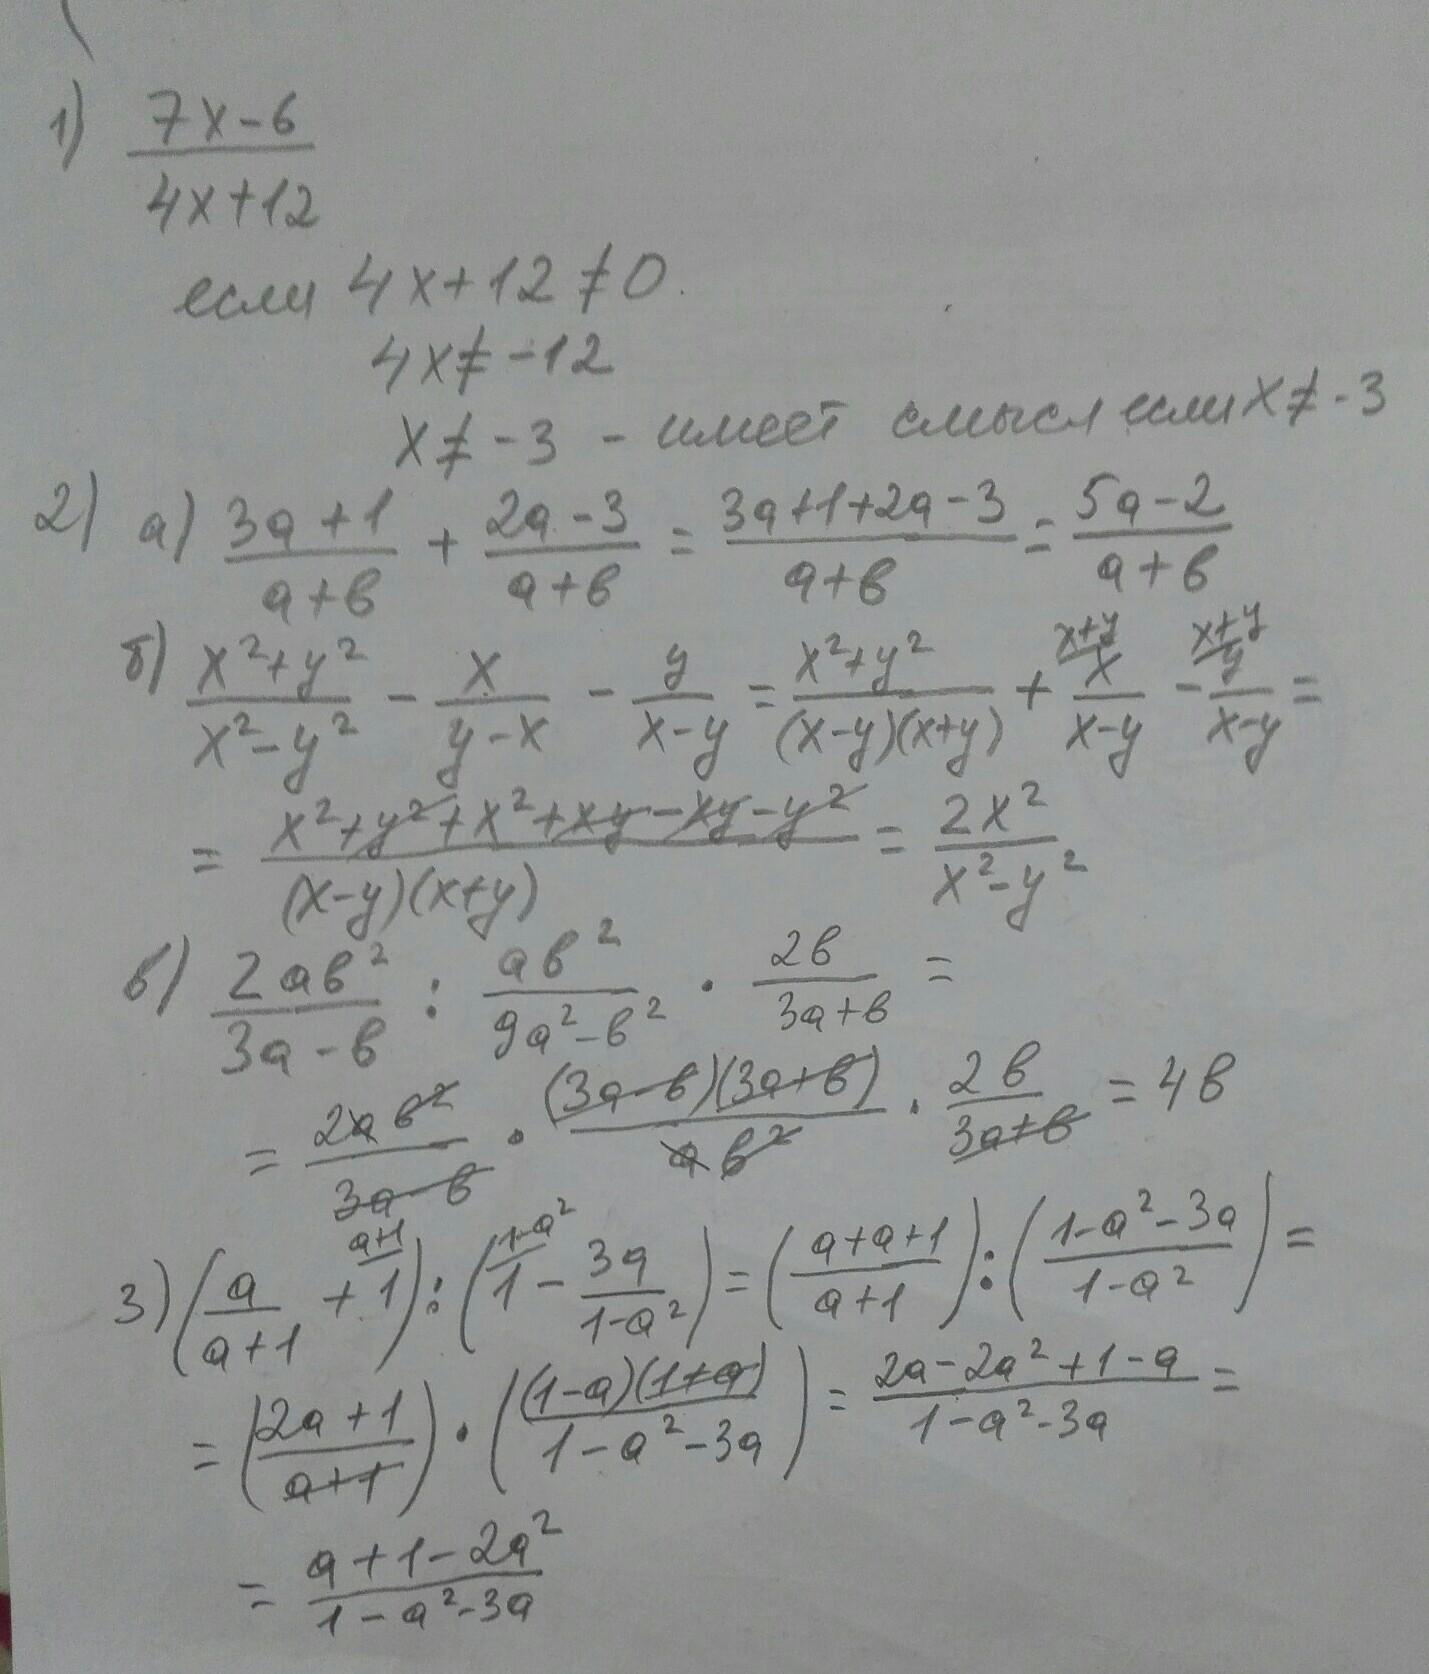 1) (7x-6)/(4x+12)
если 4x+12≠0.
4x≠-12
x≠-3 - имеет смысл если x≠-3
2) а) (3a+1)/(a+b) + (2a-3)/(a+b) = (3a+1+2a-3)/(a+b) = (5a-2)/(a+b)
б) (x²+y²)/(x²-y²) - x/(y-x) - y/(x-y) = (x²+y²)/((x-y)(x+y)) + x/(x-y) (x+y - y/(x-y) (x+y =
= (x²+y²+x²+xy-xy-y²)/((x-y)(x+y)) = 2x²/(x²-y²)
в) 2ab²/(3a-b) : ab²/(9a²-b²) · 2b/(3a+b) =
= 2ab²/(3a-b) · (3a-b)(3a+b)/ab² · 2b/(3a+b) = 4b
3) (a/(a+1) + 1 (a+1) : (1 (1-a² - 3a/(1-a²)) = ((a+a+1)/(a+1)) : ((1-a²-3a)/(1-a²)) =
= ((2a+1)/(a+1)) · ((1-a)(1+a)/(1-a²-3a)) = (2a-2a²+1-a)/(1-a²-3a) =
= (a+1-2a²)/(1-a²-3a)